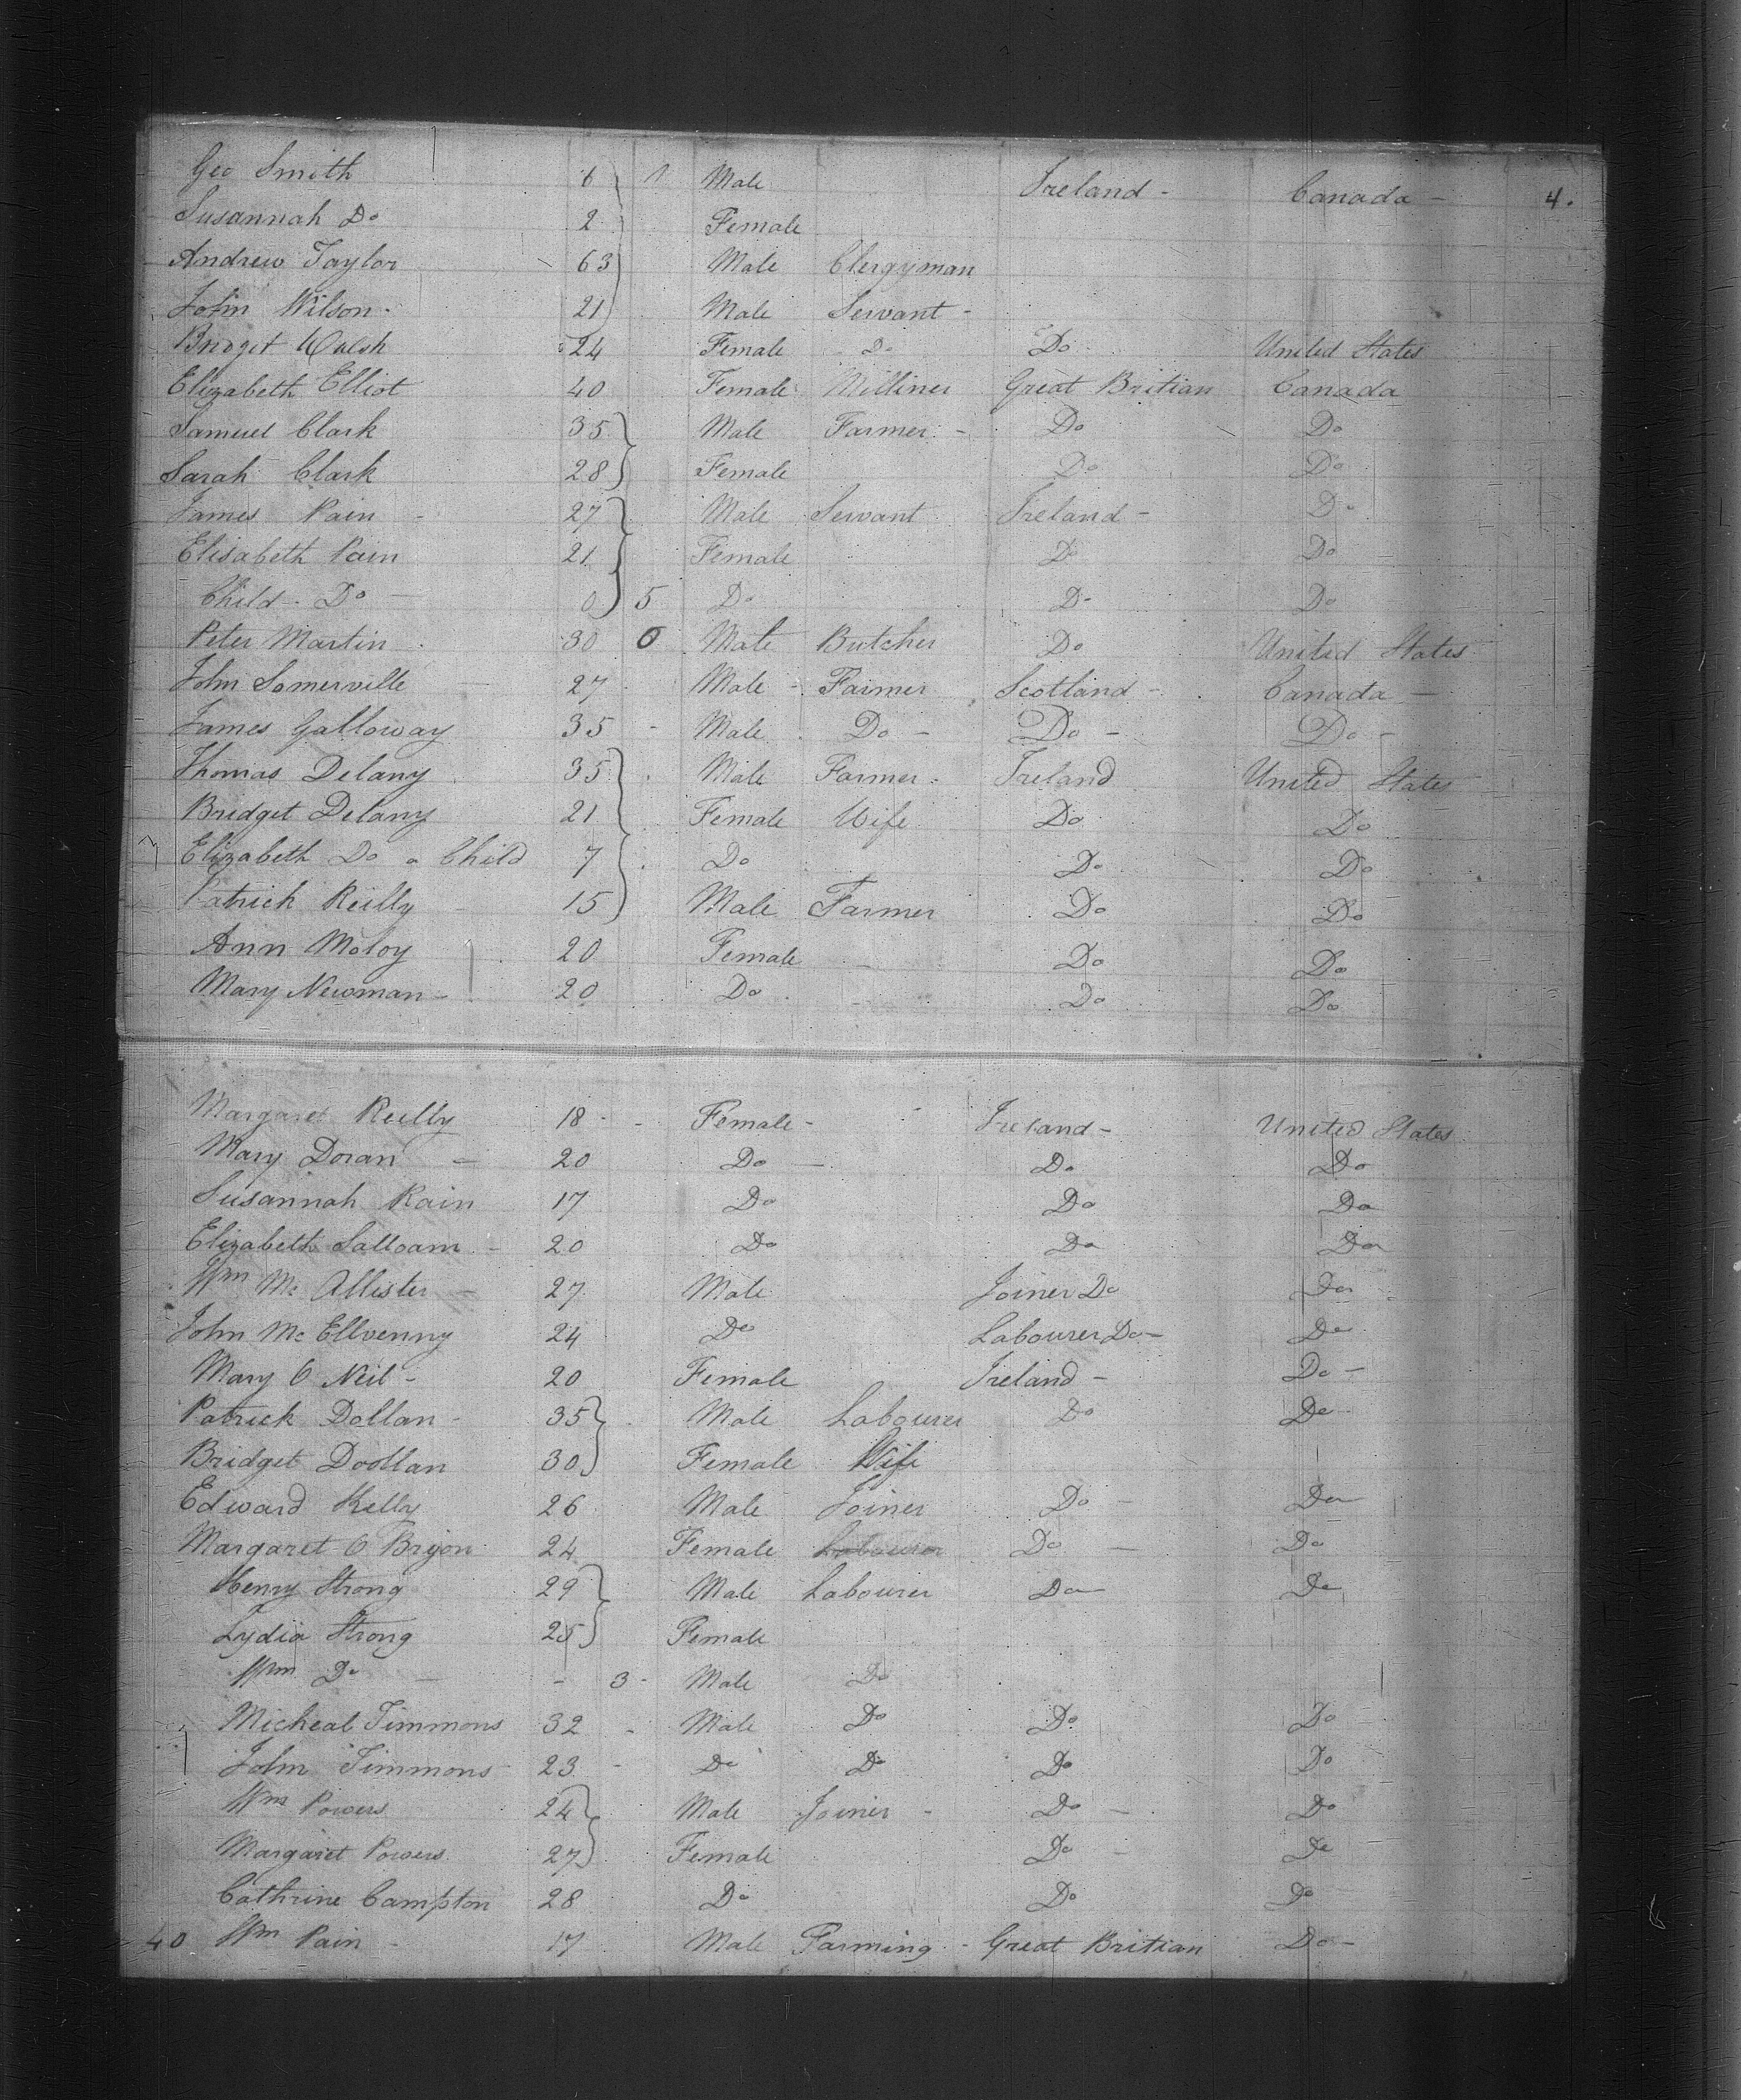 Geo Smith 6 Male Ireland - Canada - 4.
Susannah Do 2 Female
Andrew Taylor 63 Male Clergyman
John Wilson - 21 Male Servant -
Bridget Walsh 24 Female Do Do United States
Elizabeth Elliot 40 Female Milliner Great Britian Canada
Samuel Clark 35 Male Farmer - Do Do
Sarah Clark 28 Female Do Do
James Pain - 27 Male Servant Ireland - Do
Elisabeth Pain 21 Female Do Do
Child - Do - 0 5 Do Do Do
Peter Martin 30 0 Male Butcher Do United States
John Somerville 27 Male - Farmer Scotland - Canada -
James Galloway 35 - Male Do - Do - Do -
Thomas Delany 35 Male Farmer - Ireland United States
Bridget Delany 21 Female Wife Do Do
Elizabeth Do a Child 7 Do Do Do
Patrick Reilly 15 Male Farmer Do Do
Ann Moloy 20 Female Do Do
Mary Newman - 20 Do Do Do
Margaret Reilly 18 - Female - Ireland - United States
Mary Doran - 20 Do - Do Do
Susannah Rain 17 Do Do Do
Elizabeth Salloam - 20 Do Do Do
Wm Mc Allister - 27 Male Joiner Do Do
John Mc Ellvenny 24 Do Labourer Do - Do
Mary O Neil - 20 Female Ireland - Do -
Patrick Dollan - 35 Male Labourer Do Do
Bridget Doollan 30 Female Wife
Edward Kelly 26 Male Joiner Do - Do
Margaret O Bryon 24 Female Labourer Do - Do
Henry Strong 29 Male Labourer Do Do
Lydia Strong 25 Female
Wm Do - - 3 - Male Do
Micheal Timmons 32 - Male Do Do Do
John Timmons 23 - Do Do Do Do
Wm Powers 24 Male Joiner - Do - Do
Margaret Powers 27 Female Do - Do
Cathrine Campton 28 Do Do Do
40 Wm Pain - 17 Male Farming - Great Britian Do -